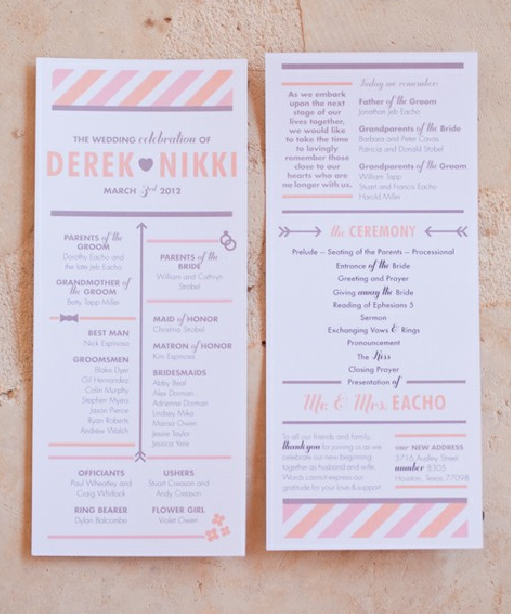 THE WEDDING celebration OF
DEREK NIKKI
MARCH 3rd 2012
PARENTS of the
GROOM
Dorothy Eacho and
the late Jeb Eacho
GRANDMOTHER of
the GROOM
Betty Tapp Miller
BEST MAN
Nick Espinosa
GROOMSMEN
Blake Dyer
Gil Hernandez
Colin Murphy
Stephen Myers
Jason Pierce
Ryan Roberts
Andrew Walch
PARENTS of the
BRIDE
William and Cathryn
Strobel
MAID of HONOR
Christina Strobel
MATRON of HONOR
Kim Espinosa
BRIDESMAIDS
Abby Beal
Alex Dorman
Adrienne Dorman
Lindsey Mika
Marisa Owen
Jessie Taylor
Jessica Yale
OFFICIANTS
Paul Wheatley and
Craig Whitlock
RING BEARER
Dylan Balcombe
USHERS
Stuart Creason and
Andy Creason
FLOWER GIRL
Violet Owen
As we embark
upon the next
stage of our
lives together,
we would like
to take the time
to lovingly
remember those
close to our
hearts who are
no longer with us.
Today we remember:
Father of the Groom
Jonathan Jeb Eacho
Grandparents of the Bride
Barbara and Peter Cavas
Patricia and Donald Strobel
Grandparents of the Groom
William Tapp
Stuart and Francis Eacho
Harold Miller
the CEREMONY
Prelude – Seating of the Parents – Processional
Entrance of the Bride
Greeting and Prayer
Giving away the Bride
Reading of Ephesians 5
Sermon
Exchanging Vows & Rings
Pronouncement
The Kiss
Closing Prayer
Presentation of
Mr. & Mrs. EACHO
To all our friends and family,
thank you for joining us as we
celebrate our new beginning
together as husband and wife.
Words cannot express our
gratitude for your love & support.
our NEW ADDRESS
5716 Audley Street
number 8305
Houston, Texas 77098